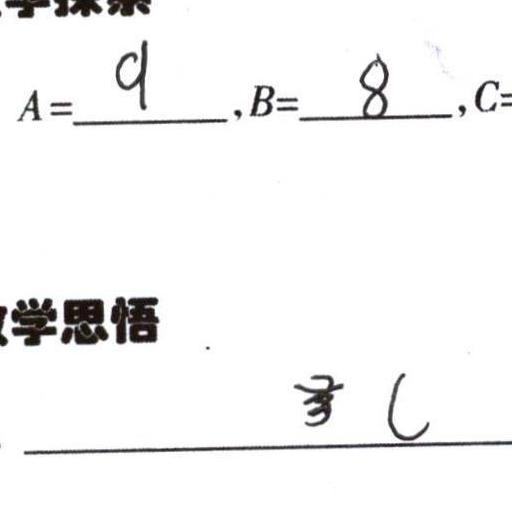 学探索
A=9,B=8,C=
数学思悟